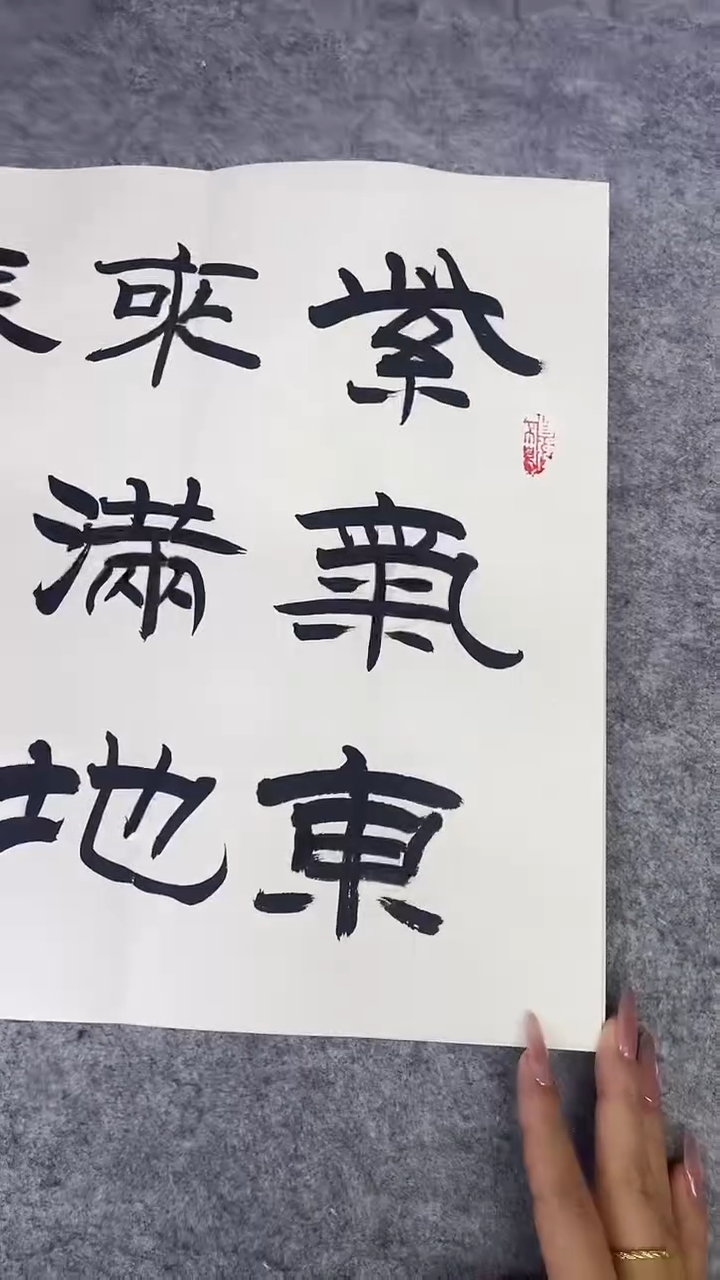 紫氣東
來滿地